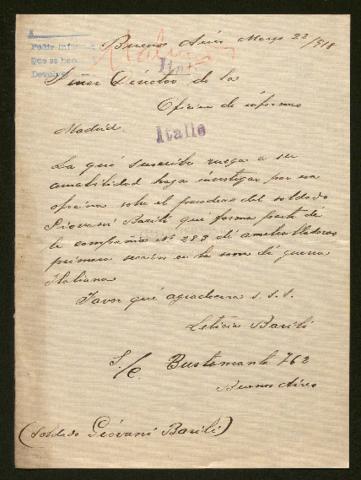 Pedir informe
Que se ha
Devolver
Buenos Aires Marzo 22/918
Italia
Senor Director de la
Oficina de informes
Madrid.
Italie
La qué suscribe ruega a su
amabilidad haga investigar por esa
oficina sobre el paradero del soldado
Giovani Barili que forma parte de
la compañia Nº 283 di ametralladoras
primera seccion en la zona di guerra
Italiana
Favor qué agradecera s. s. s.
Leticia Barili
S/c. Bustamante 762
Buenos Aires
(Soldado Giovani Barili)